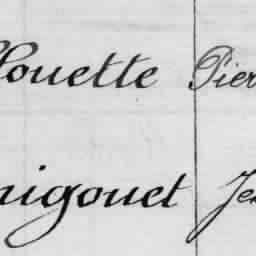 louette Pier
nigouet Je